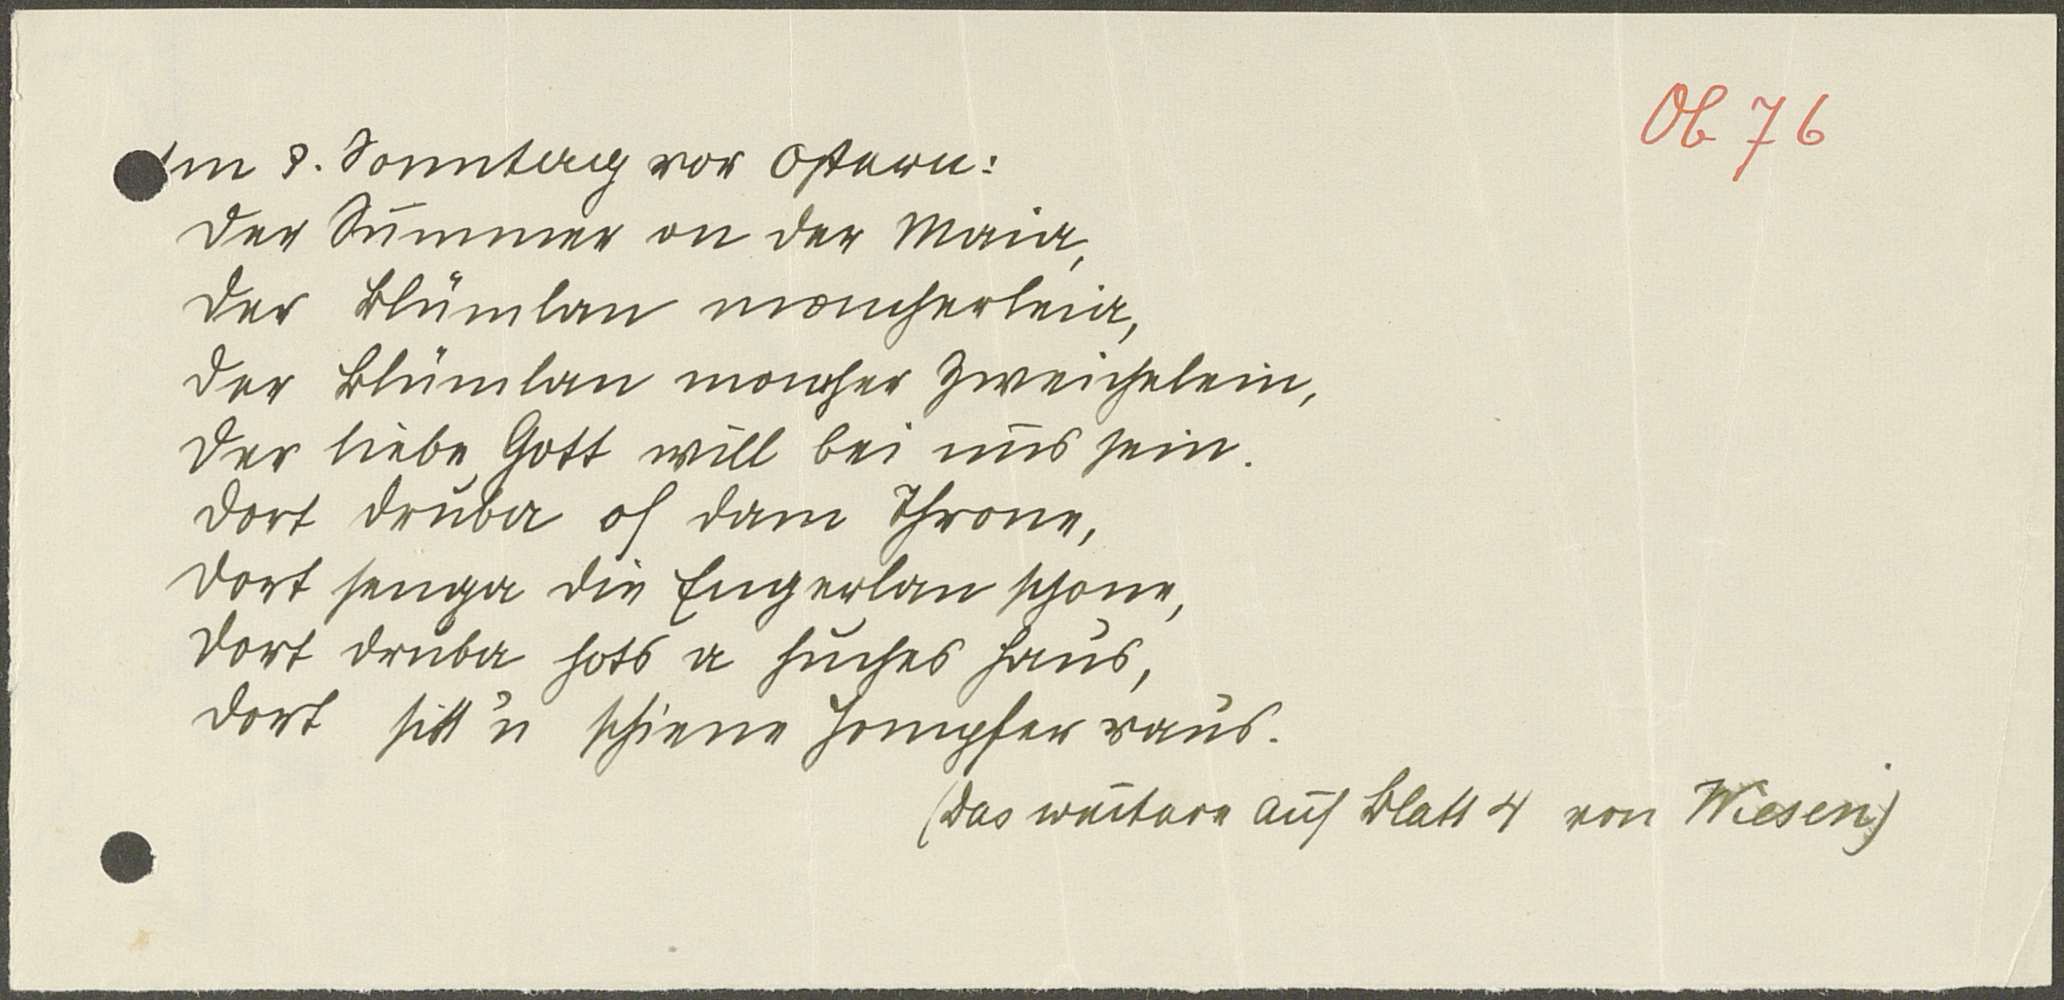 Ob 76
Am 3. Sonntag vor Ostern:
Der Summer on der Maia,
Der Blümlan moncherleia,
Der Blümlan moncher Zweichelein,
Der liebe Gott will bei uns sein.
Dort druba of dam Throne,
Dort senga die Engerlan schone,
Dort druba hots a huches Haus,
Dort sitt 'n schiene Jompfer raus.
(Das weitere auf Blatt 4 von Wiesen)